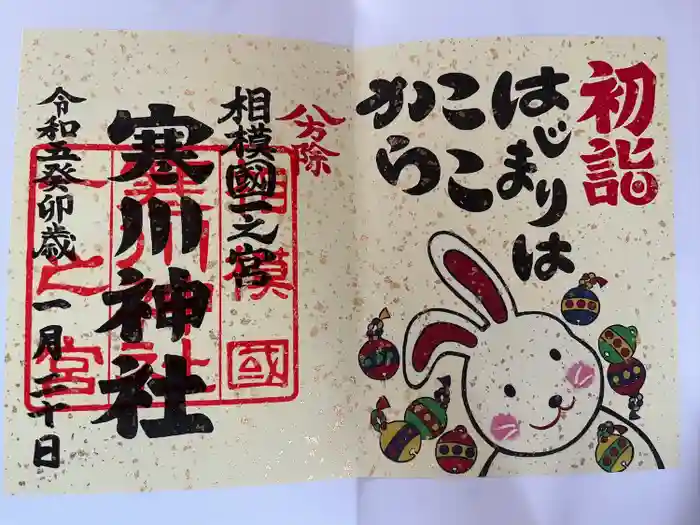 初詣
はじまりは
ここ
から
八方除
相模國一之宮
寒川神社
令和五癸卯歳 一月二十日
相模國
寒川神社
一之宮